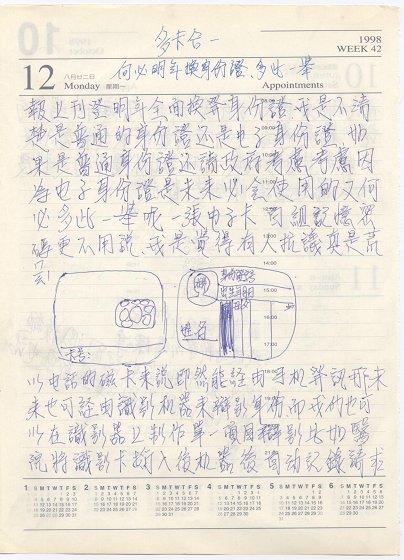 多卡合一
1998
WEEK 42
何必明年換身份證、多此一舉
12 八月廿二日
Monday 星期一
Appointments
報上刊登明年全面換發身份證，我是不清
楚是普通的身份證还是电子身份證，如
果是普通身份證还請政府考慮考慮因
為电子身份證是未來必会使用的又何
必多此一舉呢一張电子卡可組記憶眾
碼更不用說，我是覺得有人抗議真是荒
卡号：
身份證号
出生年月日
姓名
14:00
15:00
16:00
17:00
以电話的磁卡来說即然能経由手机辨認那未
来也可経由識別机器来辨别身份而我們也可
以在識別器上制作單一項目辨别比如醫
院將識别卡插入後机器後自动記錄請求
1 S M T W T F S
2 S M T W T F S
3 S M T W T F S
4 S M T W T F S
5 S M T W T F S
6 S M T W T F S